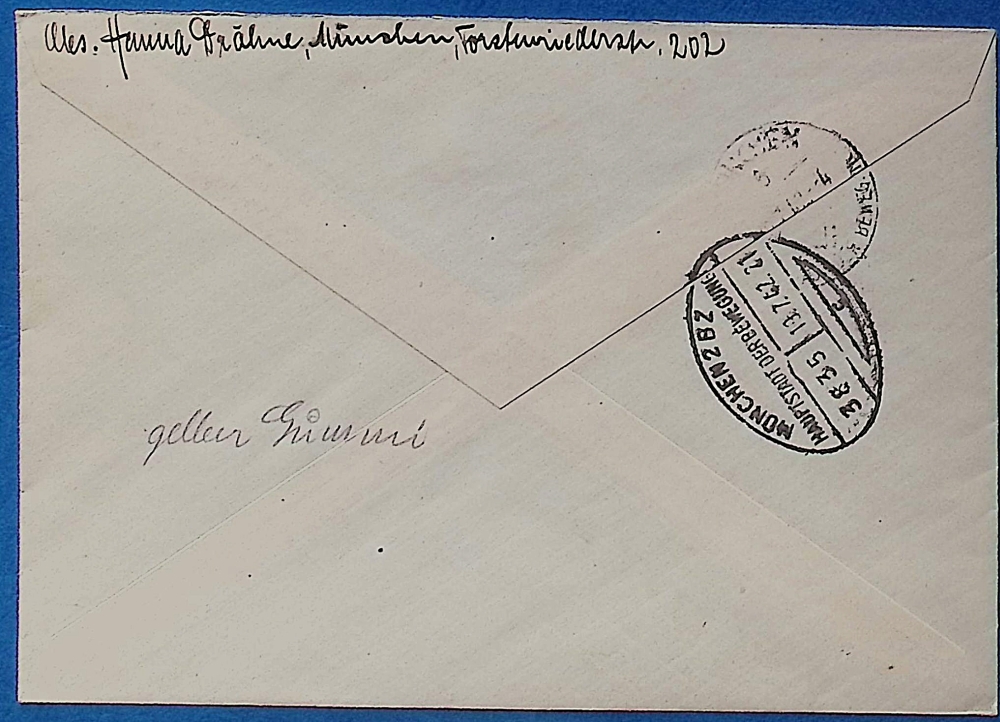 Abs. Hanna Drähne, München, Forstenriederstr. 202
MÜNCHEN 2 BZ
HAUPTSTADT DER BEWEGUNG
13.7.62.21
3835
c
gelber Gummi